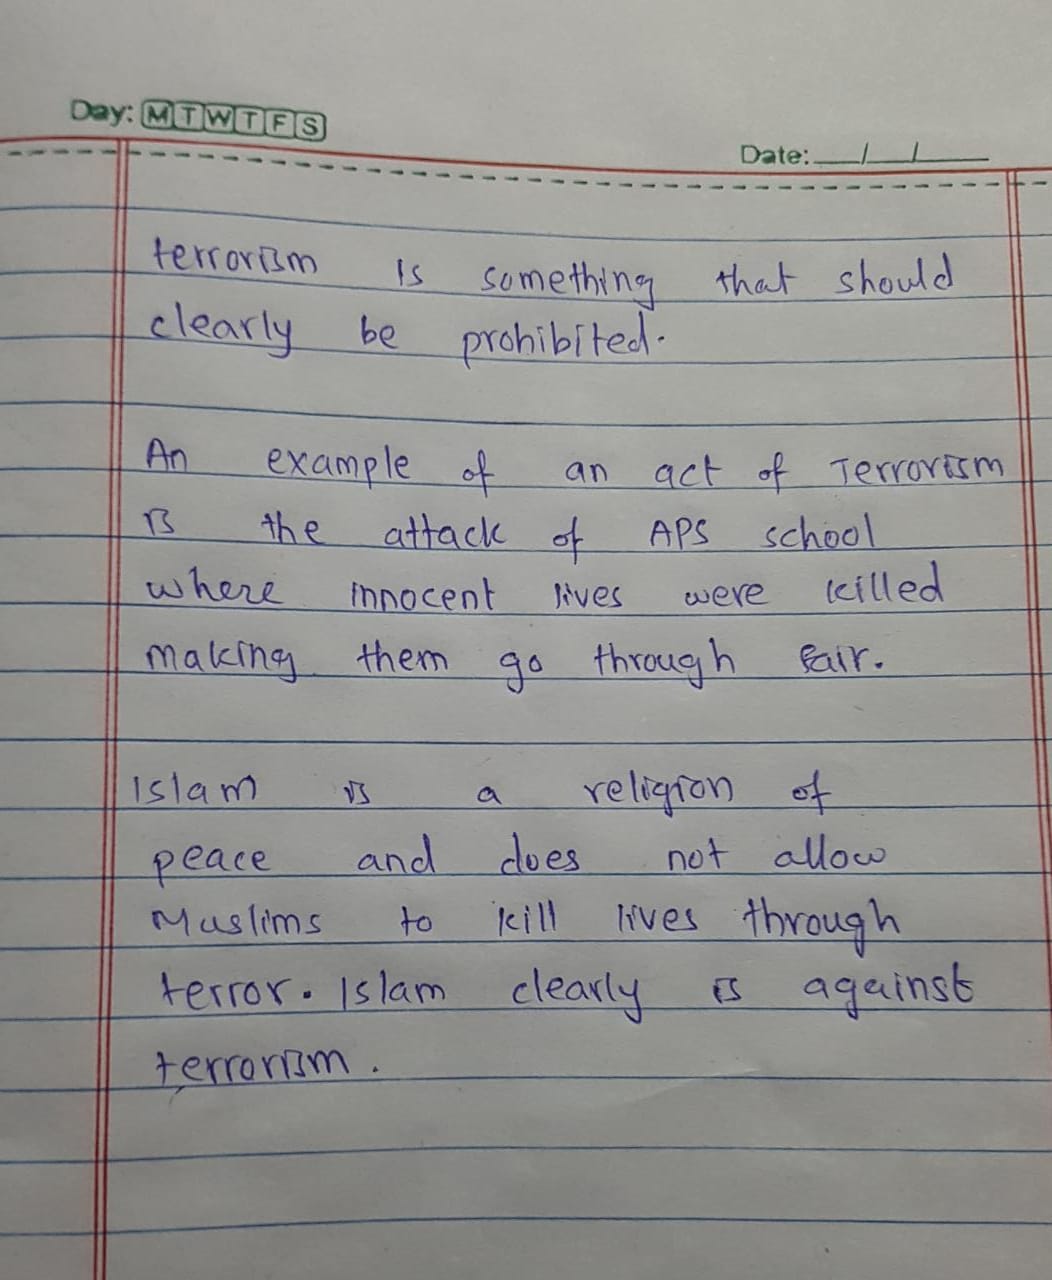 Day: M T W T F S
Date: __/__/____
terrorism is something that should
clearly be prohibited.
An example of an act of Terrorism
is the attack of APS school
where innocent lives were killed
making them go through fair.
Islam is a religion of
peace and does not allow
Muslims to kill lives through
terror. Islam clearly is against
terrorism.